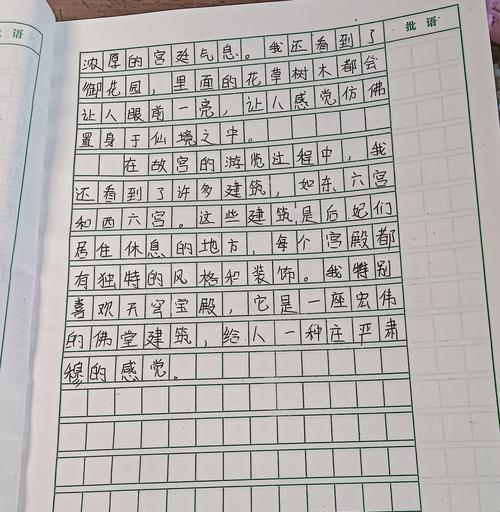 批语
浓厚的宫廷气息。我还看到了
御花园，里面的花草树木都会
让人眼前一亮，让人感觉仿佛
置身于仙境之中。
在故宫的游览过程中，我
还看到了许多建筑，如东六宫
和西六宫。这些建筑是后妃们
居住休息的地方，每个宫殿都
有独特的风格和装饰。我特别
喜欢天穹宝殿，它是一座宏伟
的佛堂建筑，给人一种庄严肃
穆的感觉。
语